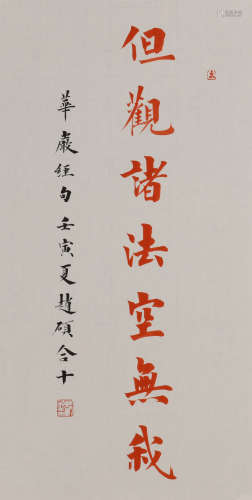 但觀諸法空無我
華嚴經句壬寅夏趙碩合十